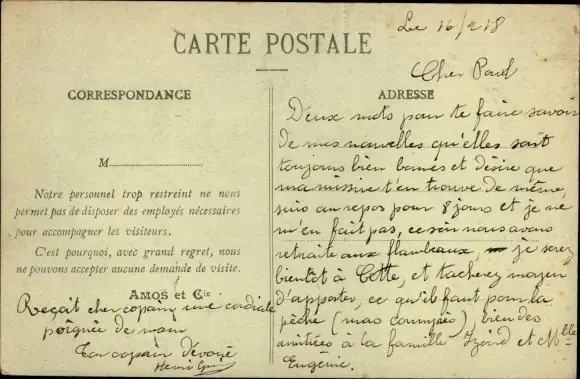 Le 16/2 18
CARTE POSTALE
Cher Paul
CORRESPONDANCE
M
Notre personnel trop restreint ne nous
permet pas de disposer des employés nécessaires
pour accompagner les visiteurs.
C'est pourquoi, avec grand regret, nous
ne pouvons accepter aucune demande de visite.
AMOS et Cie
Reçoit cher copain une cordiale
poignée de main
Ton copain dévoué
Henri
ADRESSE
Deux mots pour te faire savoir
de mes nouvelles qu'elles sont
toujours bien bonnes et désire que
ma missive t'en trouve de même,
suis au repos pour 8 jours et je ne
m'en fait pas, ce soir nous avons
retraite aux flambeaux, je serez
bientôt à Cette, et tachez moyen
d'apporter, ce qu'il faut pour la
pêche (mas compris) bien des
amitiées à la famille et Mlle
Eugénie.